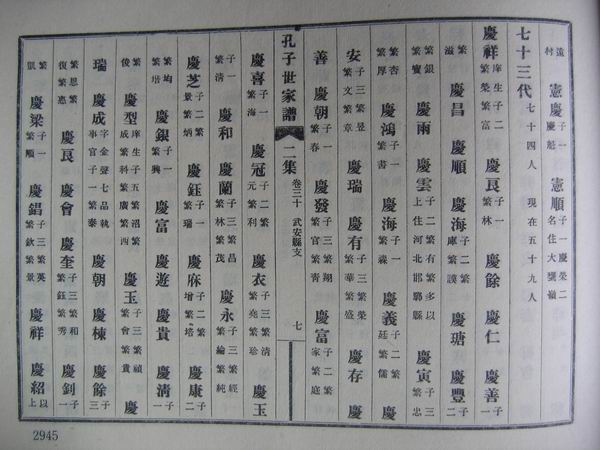 遠村 憲慶 子一慶船 憲順 子一慶榮二名住大甕嶺
七十三代 七十四人 現在五十九人
慶祥 庠生子二繁榮繁富 慶良 子一繁林 慶餘 慶仁 慶善 子一
繁滋 慶昌 慶順 慶海 子二繁庫繁謨 慶瑭 慶豐 子二
繁銀繁寶 慶雨 慶雲 子二繁有繁多以上住河北邯鄲縣 慶寅 子三繁忠
繁杏繁厚 慶鴻 子一繁書 慶海 子一繁森 慶義 子二繁廷繁儒 慶
安 子三繁昱繁文繁章 慶瑞 慶有 子三繁榮繁華繁盛 慶存 慶
善 慶朝 子一繁春 慶發 子三繁翔繁官繁青 慶富 子二繁家繁庭
孔子世家譜 二集 卷三十 武安縣支 七
慶喜 子一繁海 慶冠 子二繁元繁利 慶衣 子三繁清繁堯繁珍 慶玉
子一繁清 慶和 慶蘭 子三繁昌繁林繁茂 慶永 子三繁經繁綸繁純
慶芝 子二繁景繁炳 慶鈺 子一繁瑞 慶庥 子二繁增繁培 慶康 子二
繁均繁堦 慶銀 子一繁興 慶富 慶遊 慶貴 慶清 子一
繁俊 慶型 庠生子五繁沼繁成繁科繁廣繁西 慶玉 子三繁禎繁會繁貴 慶
瑞 慶成 字金聲七品執事官子一繁泰 慶朝 慶棟 慶餘 子三
繁思繁復繁憲 慶良 慶會 慶奎 子三繁和繁鈺繁秀 慶釗 子一
繁凱 慶梁 子一繁順 慶錩 子三繁英繁欽繁景 慶祥 慶紹 以上
2945